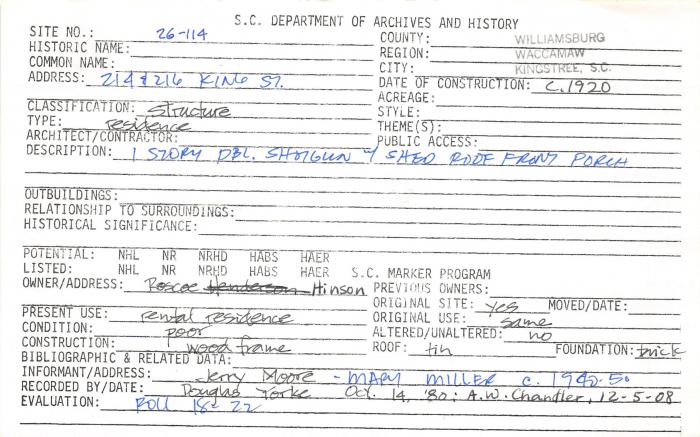 S.C. DEPARTMENT OF ARCHIVES AND HISTORY
SITE NO.: 26-114 COUNTY: WILLIAMSBURG
HISTORIC NAME: REGION: WACCAMAW
COMMON NAME: CITY: KINGSTREE, S.C.
ADDRESS: 214 & 216 KING ST. DATE OF CONSTRUCTION: C. 1920
ACREAGE:
CLASSIFICATION: structure STYLE:
TYPE: residence THEME(S):
ARCHITECT/CONTRACTOR: PUBLIC ACCESS:
DESCRIPTION: 1 STORY DBL. SHOTGUN W/ SHED ROOF FRONT PORCH
OUTBUILDINGS:
RELATIONSHIP TO SURROUNDINGS:
HISTORICAL SIGNIFICANCE:
POTENTIAL: NHL NR NRHD HABS HAER
LISTED: NHL NR NRHD HABS HAER S.C. MARKER PROGRAM
OWNER/ADDRESS: Roscoe Henderson Hinson PREVIOUS OWNERS:
ORIGINAL SITE: yes MOVED/DATE:
PRESENT USE: rental residence ORIGINAL USE: same
CONDITION: poor ALTERED/UNALTERED: no
CONSTRUCTION: wood frame ROOF: tin FOUNDATION: brick
BIBLIOGRAPHIC & RELATED DATA:
INFORMANT/ADDRESS: Jerry Moore - MARY MILLER C. 1940-50
RECORDED BY/DATE: Douglas Yorke Oct. 14, '80; A.W. Chandler, 12-5-08
EVALUATION: ROLL 18-22